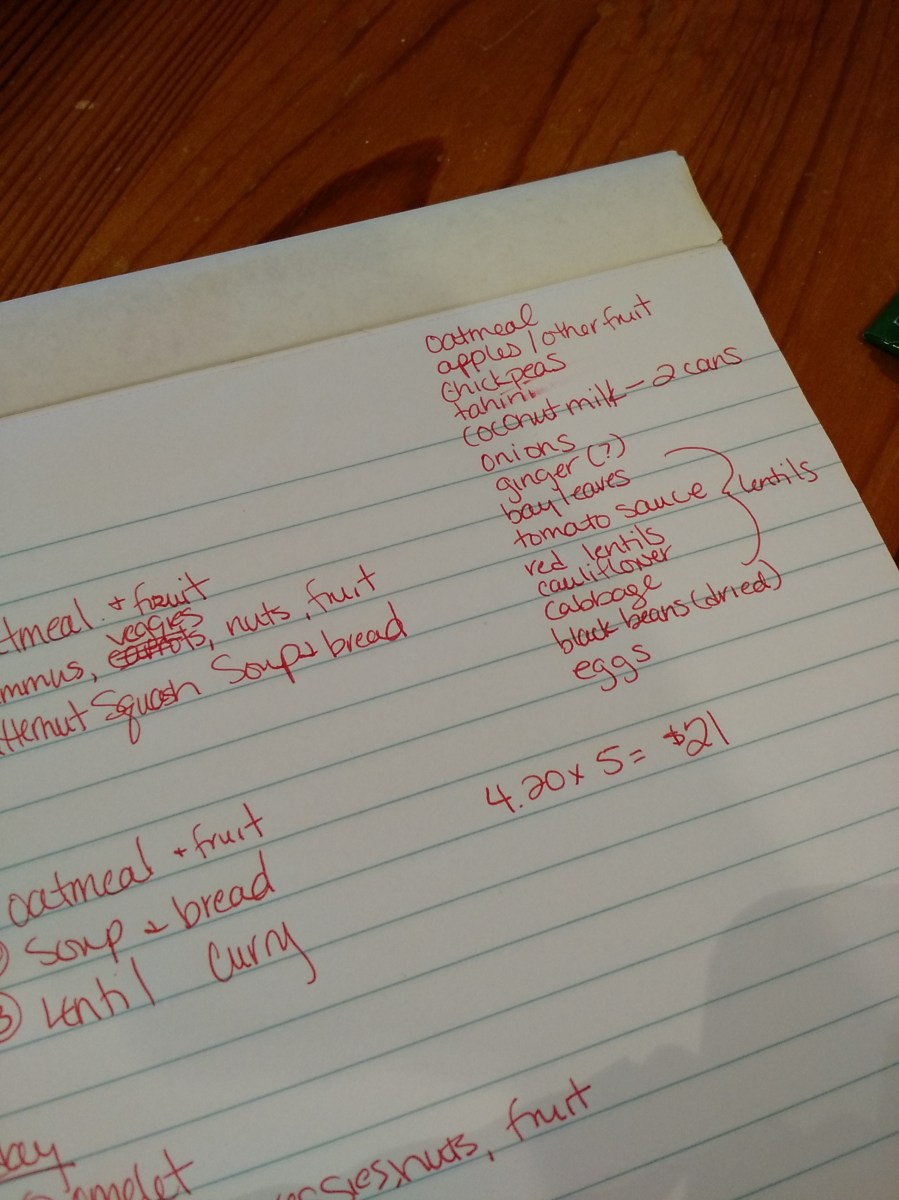 oatmeal
apples / other fruit
chickpeas
tahini
coconut milk - 2 cans
onions
ginger (?)
bay leaves
tomato sauce } lentils
red lentils
cauliflower
cabbage
black beans (dried)
eggs
4.20 x 5 = $21
tmeal + fruit
veggies
mmus, carrots, nuts, fruit
tternut Squash Soup + bread
oatmeal + fruit
soup + bread
③ lentil curry
day
omelet
nuts, fruit